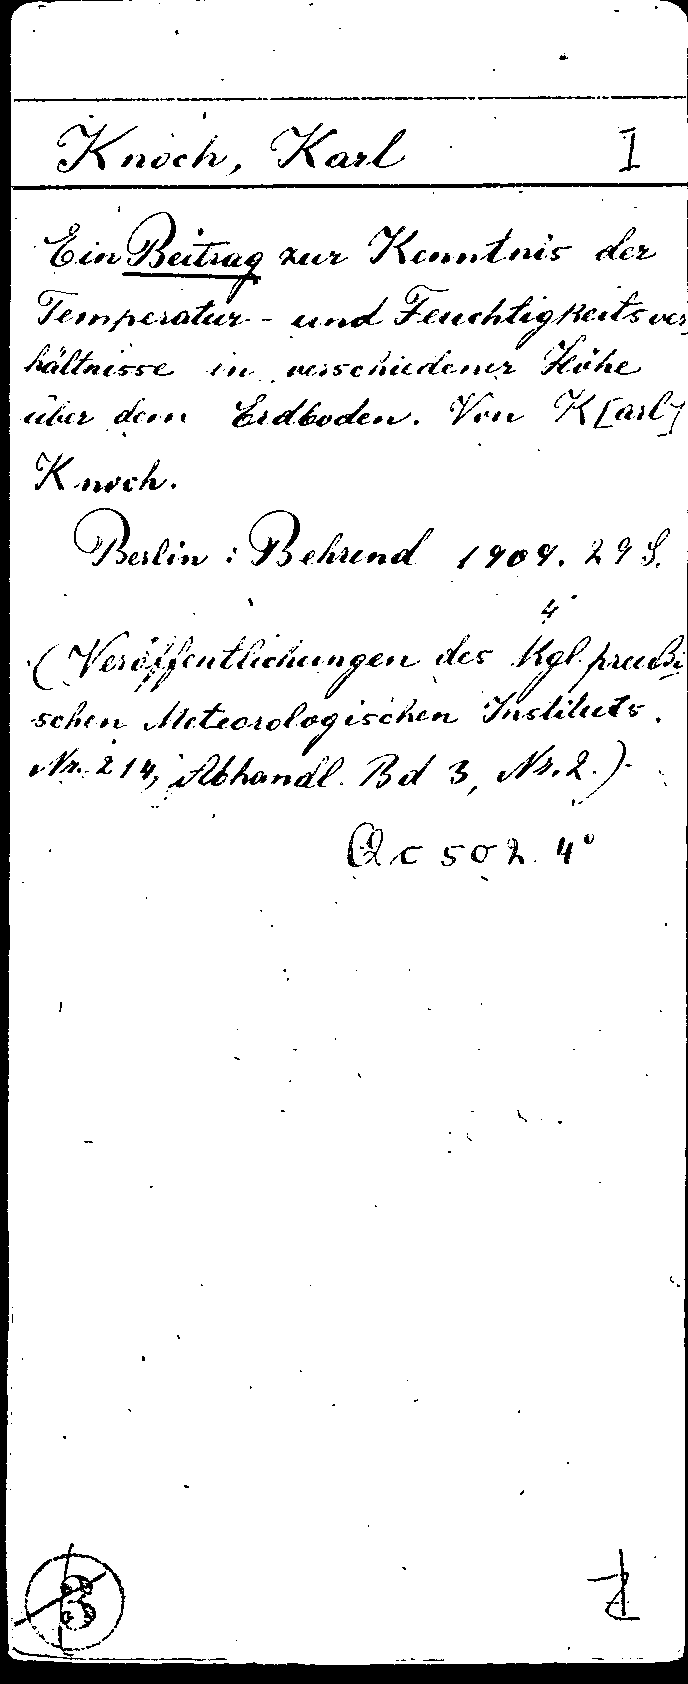 Knoch, Karl I
Ein Beitrag zur Kenntnis der
Temperatur- und Feuchtigkeitsver
hältnisse in verschiedener Höhe
über dem Erdboden. Von K[arl]
Knoch.
Berlin: Behrend 1909. 29 S.
4°
(Veröffentlichungen des Kgl. preußi
schen Meteorologischen Instituts.
Nr. 214, Abhandl. Bd 3, Nr. 2.)
Qc 502 4°
B